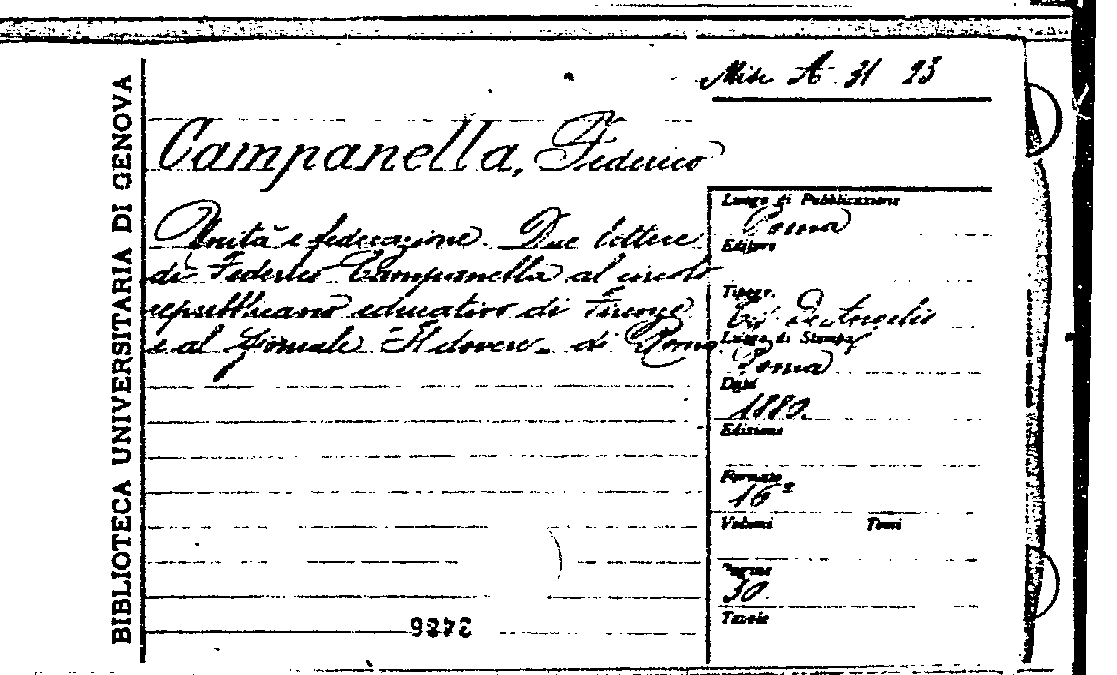 BIBLIOTECA UNIVERSITARIA DI GENOVA
Misc A 31 23
Campanella, Federico
Unità e federazione. Due lettere
di Federico Campanella al circolo
repubblicano educativo di Firenze
e al giornale "Il dovere" di Roma
Luogo di Pubblicazione
Roma
Editore
Tipogr.
Tip. De Angelis
Luogo di Stampa
Roma
Data
1880.
Edizione
Formato
16°
Volumi Tomi
Pagine
30.
Tavole